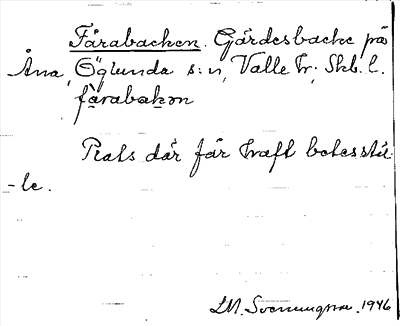 Fårabacken. Gärdesbacke på
Åna, Öglunda s:n, Valle hr; Skb. l.
fårabakən
Plats där får haft betesstäl-
-le.
LM. Svenungsson. 1946